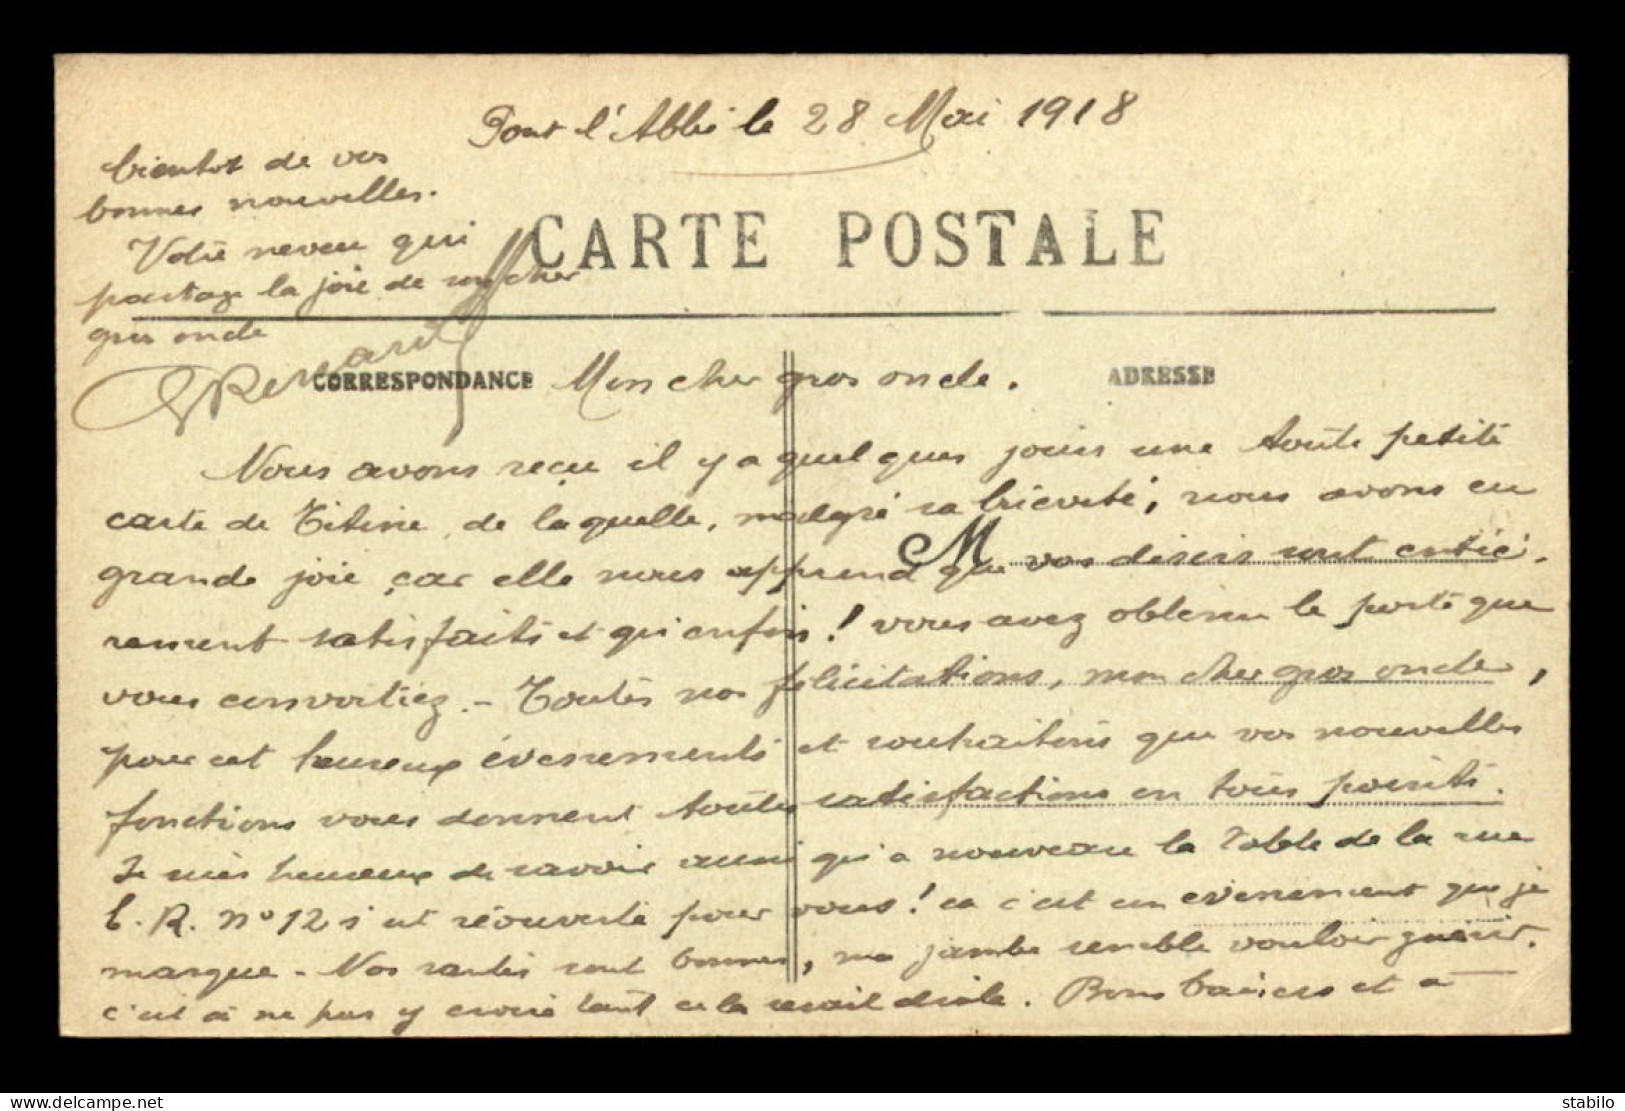 Pont l'Abbé le 28 Mai 1918
CARTE POSTALE
CORRESPONDANCE
ADRESSE
Mon cher gros oncle.
Nous avons reçu il y a quelques jours une toute petite
carte de Titine, de laquelle, malgré sa brièveté, nous avons eu
grande joie, car elle nous apprend que vos désirs sont entiè-
M
rement satisfaits et qu'enfin! vous avez obtenu le poste que
vous convoitiez. - Toutes nos félicitations, mon cher gros oncle,
pour cet heureux évènements et souhaitons que vos nouvelles
fonctions vous donnent toutes satisfactions en tous points.
Je suis heureux de savoir aussi qu'à nouveau la Table de la rue
R. n° 12 s'est réouverte pour vous! ça c'est un évènement que je
marque - Nos santés sont bonnes, ma jambe semble vouloir guérir.
c'est à ne pas y croire tant cela serait drôle. Bons baisers et à
bientot de vos
bonnes nouvelles.
Votre neveu qui
partage la joie de son cher
gros oncle
Renard
stabilo
www.delcampe.net